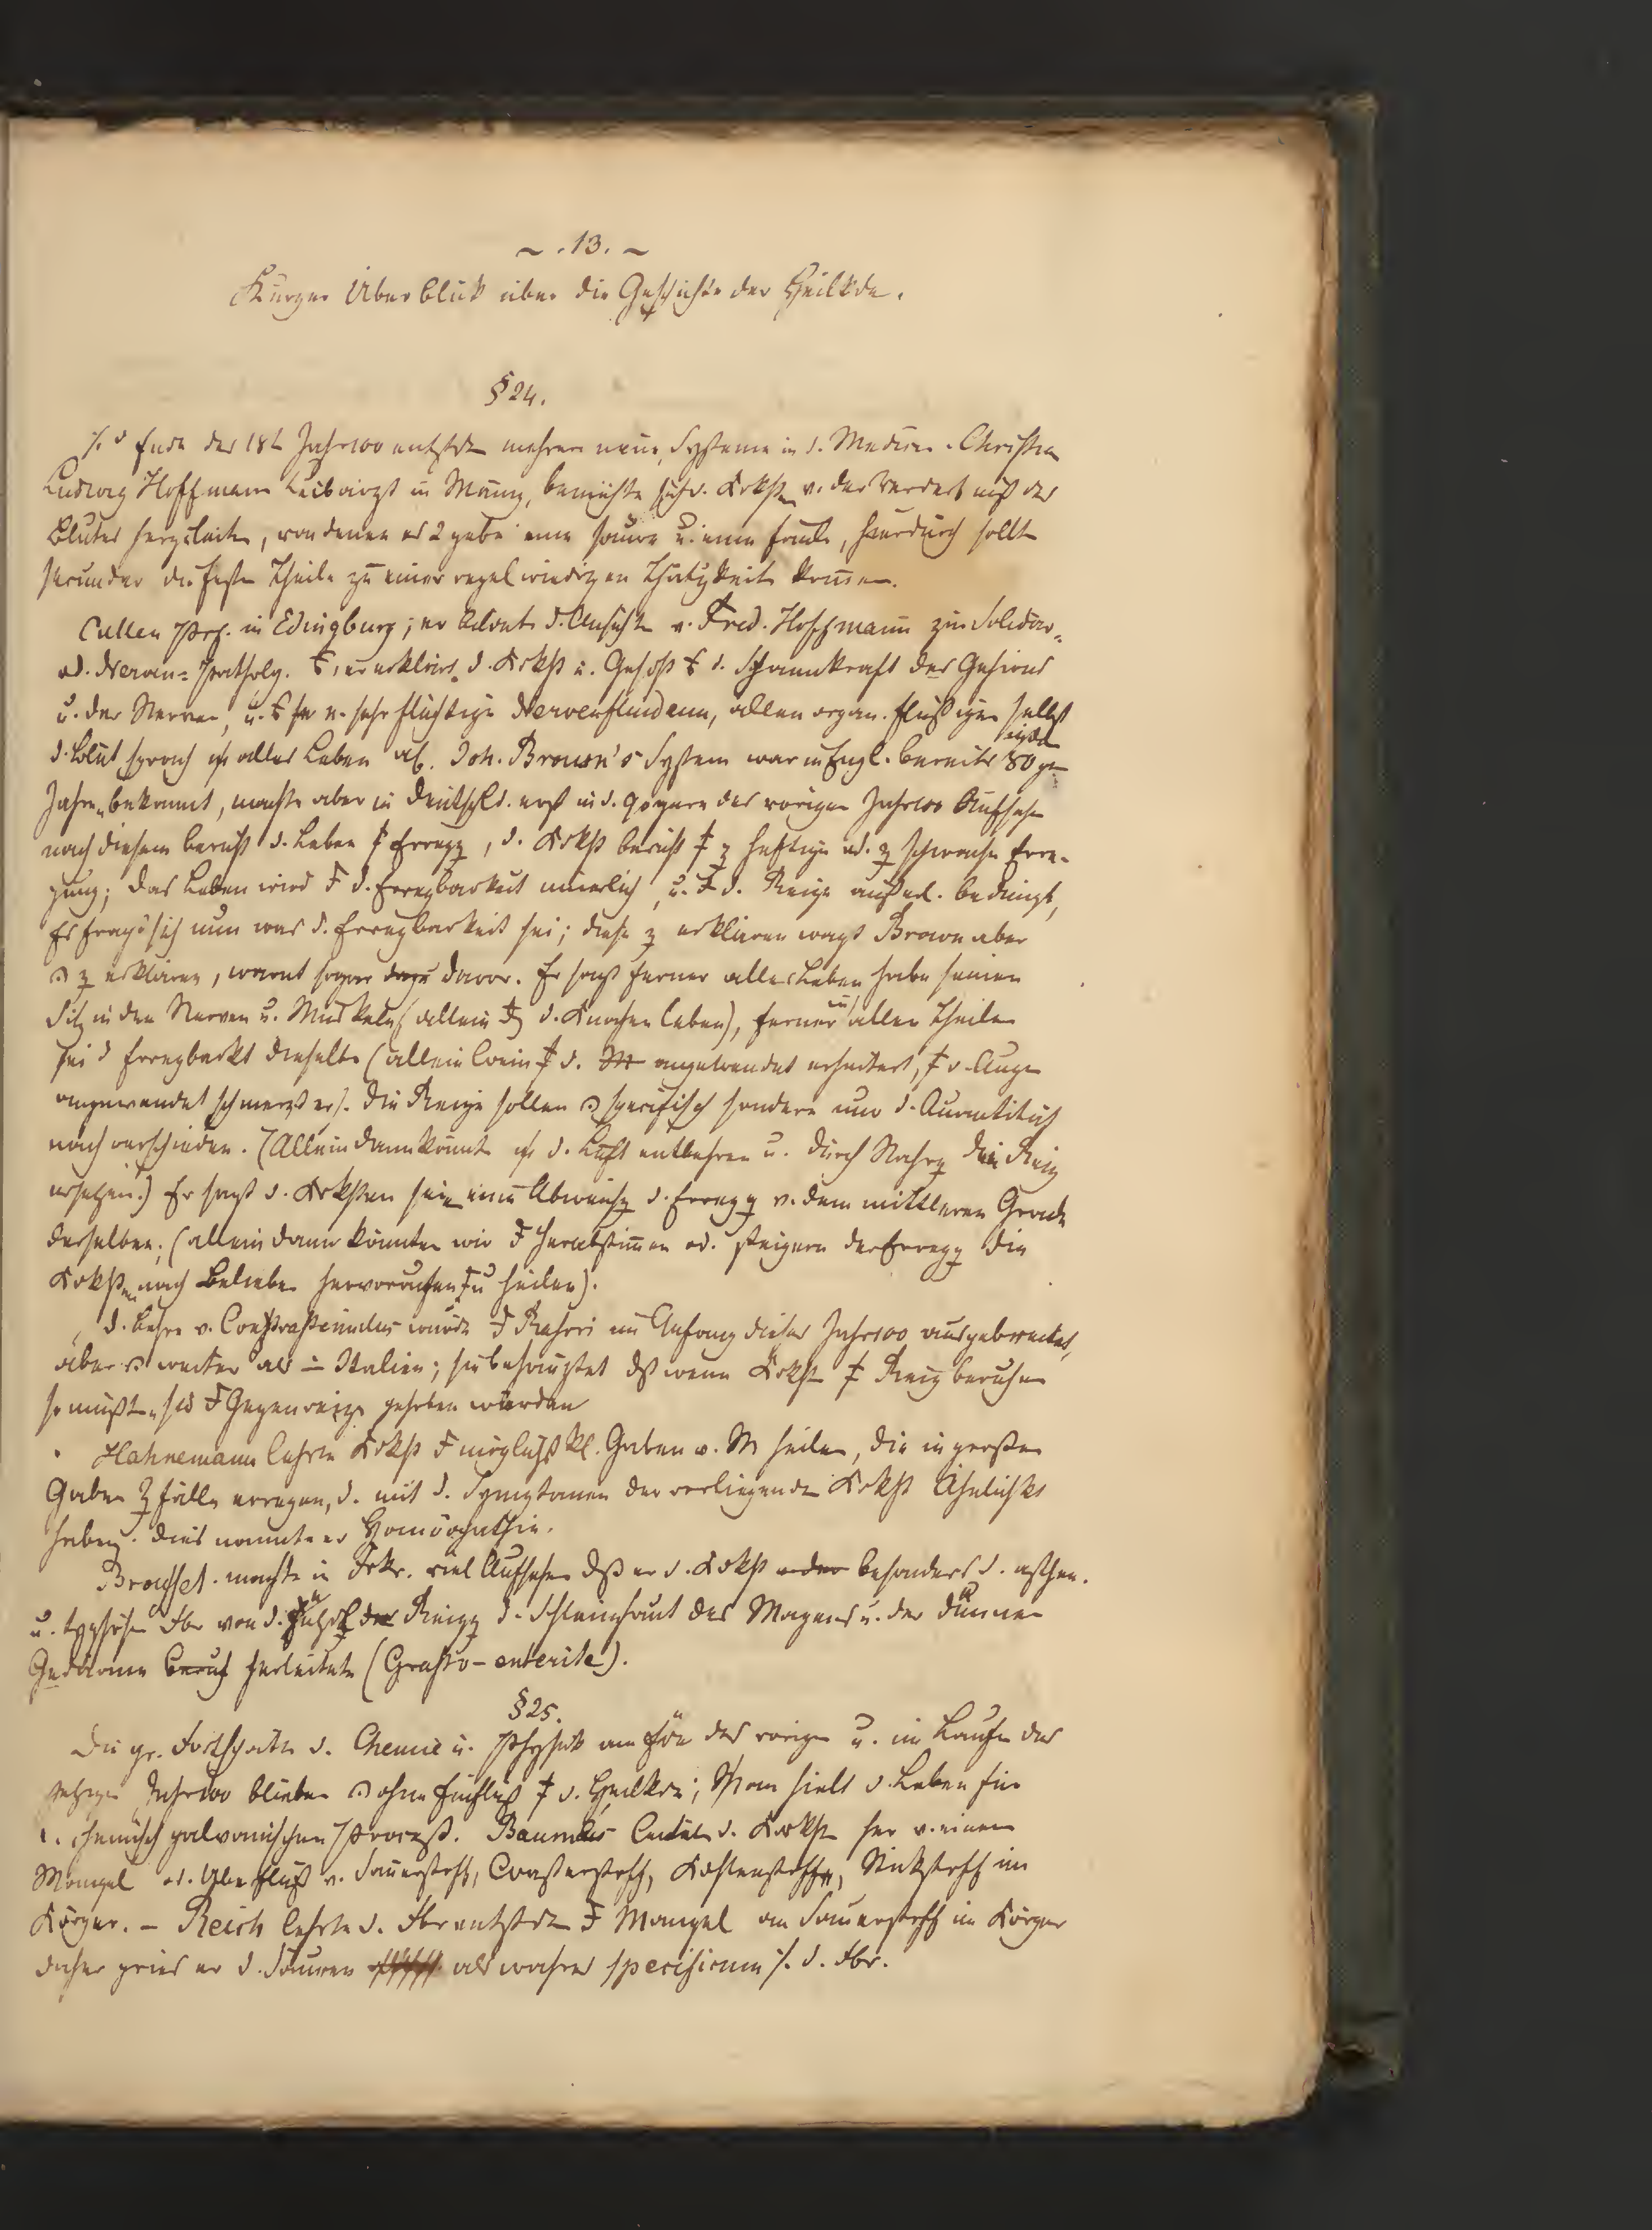 ~ . 13. ~
Kurzer Überblick über die Geschichte der Heilkde.
§ 24.
Ende des 18t Jahr100 entstdn mehrere neue Systeme in d. Medicin. Christian
Ludwig Hoffmann Leibarzt in Mainz, bemühte sich d. Krkhtn v. der Verderbniß des
Blutes herzuleiten, von denen es 2 gebe eine saure u. eine faule, hierdurch sollten
secundär die festen Theile zu einer regelwiedrigen Thätigkeit kommen.
Cullen Prof. in Edingburg; er bildete d. Ansichten v. Fred. Hoffmann zur Solidar-
od. Nerven-Patholg. er erklärte d. Krkht u. Gesdht d. Spannkraft des Gehirns
u. der Nerven, u. sehr flüchtige Nervenfluidum, allen organ. Flüßigen selbst
d. Blut sprach er alles Leben ab. Joh. Brown's System war in Engl. bereits 80ger
Jahren bekannt, machte aber in Deutschld. erst in d. 90gern des vorigen Jahr100 Aufsehen
nach diesem beruht d. Leben Erregg, d. Krkht beruht z heftiger od. z schwacher Erre-
gung; das Leben wird d. Erregbarkeit innerlich, u. d. Reize äußerl. bedingt,
Es fragt sich nun was d. Erregbarkeit sei; diese z erklären wagt Brown aber
z erklären, warnt sogar dazu davor. Er sagt ferner alles Leben habe seinen
Sitz in den Nerven u. Muskeln (allein d. Knochen leben), ferner in allen Theilen
sei d Erregbarkt dieselbe (allein Wein d. M angewendet erheitert, d. Auge
angewendet schmerzt er). Die Reize sollen specifisch sondern nur d. Quantität
nach verschieden. (Allein dann könnte d. Luft entbehren u. durch Nahrg den Reiz
ersetzen.) Er sagt d. Krkhten seien eine Abweichg d. Erregg v. dem mittleren Grade
derselben; (allein dann könnten wir Herabstimmen od. steigern der Erregg die
Krkhten nach Belieben hervorrufen u heilen).
d. Lehre v. Contrastimulus wurde Rasori im Anfang dieses Jahr100 ausgebreitet,
aber weiter als in Italien; sie behauptet dß wenn Krkht Reiz beruhen
so müßten sie Gegenreize gehoben werden
Hahnemann lehrte Krkht möglichst kl. Gaben v. M heilen, die in großen
Gaben Zfälle erregen, d. mit d. Symptomen der vorliegenden Krkht Ähnlichkt
haben. dies nannte er Homöopathie.
Broussel. machte in Frkr. viel Aufsehen dß er d. Krkht oder besonders d. asthen.
u. typhösen Fbr von d. Reizg d. Schleimhaut des Magens u. der dünnen
Gedärme beruh herleitete (Gastro-enterite).
§ 25.
Die gr. Fortschritte d. Chemie u. Physik am Ende des vorigen u. im Laufe des
jetzigen Jahr100 blieben ohne Einfluß d. Heilkde; Man hielt d. Leben für
chemisch galvanischen Proceß. Baumes leitete d. Krkhtn her v. einem
Mangel od. Überfluß v. Sauerstoff, Waßerstoff, Kohlenstoff, Stickstoff im
Körper. – Reich lehrte d. Fbr entstden Mangel an Sauerstoff im Körper
daher pries er d. Säuren als wahres specificum d. Fbr.